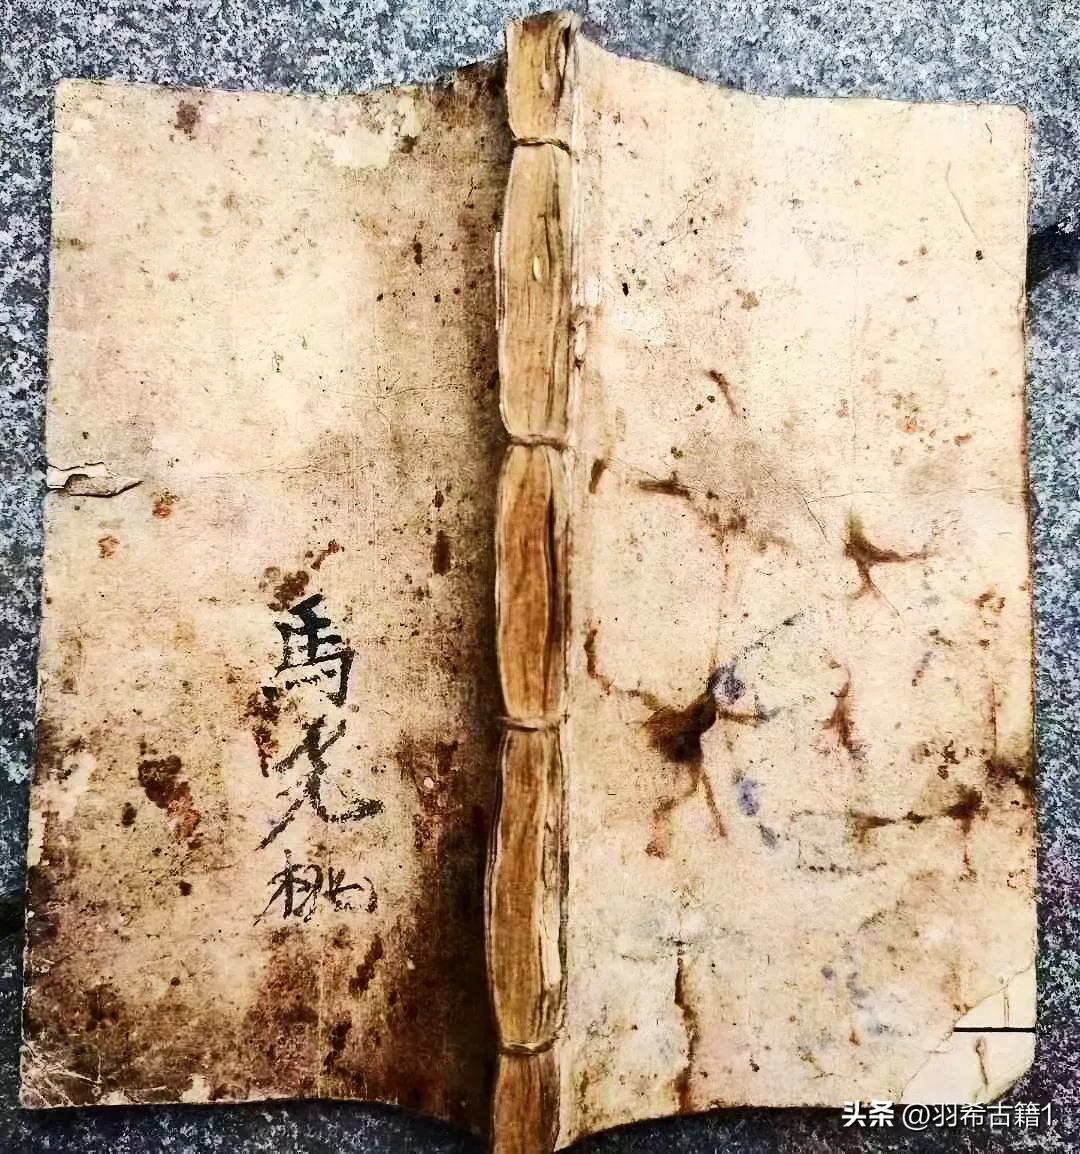 馬光
头条 @羽希古籍1